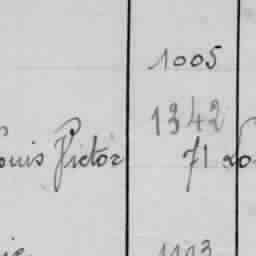 1005
1342
ouis Victor 71
1103